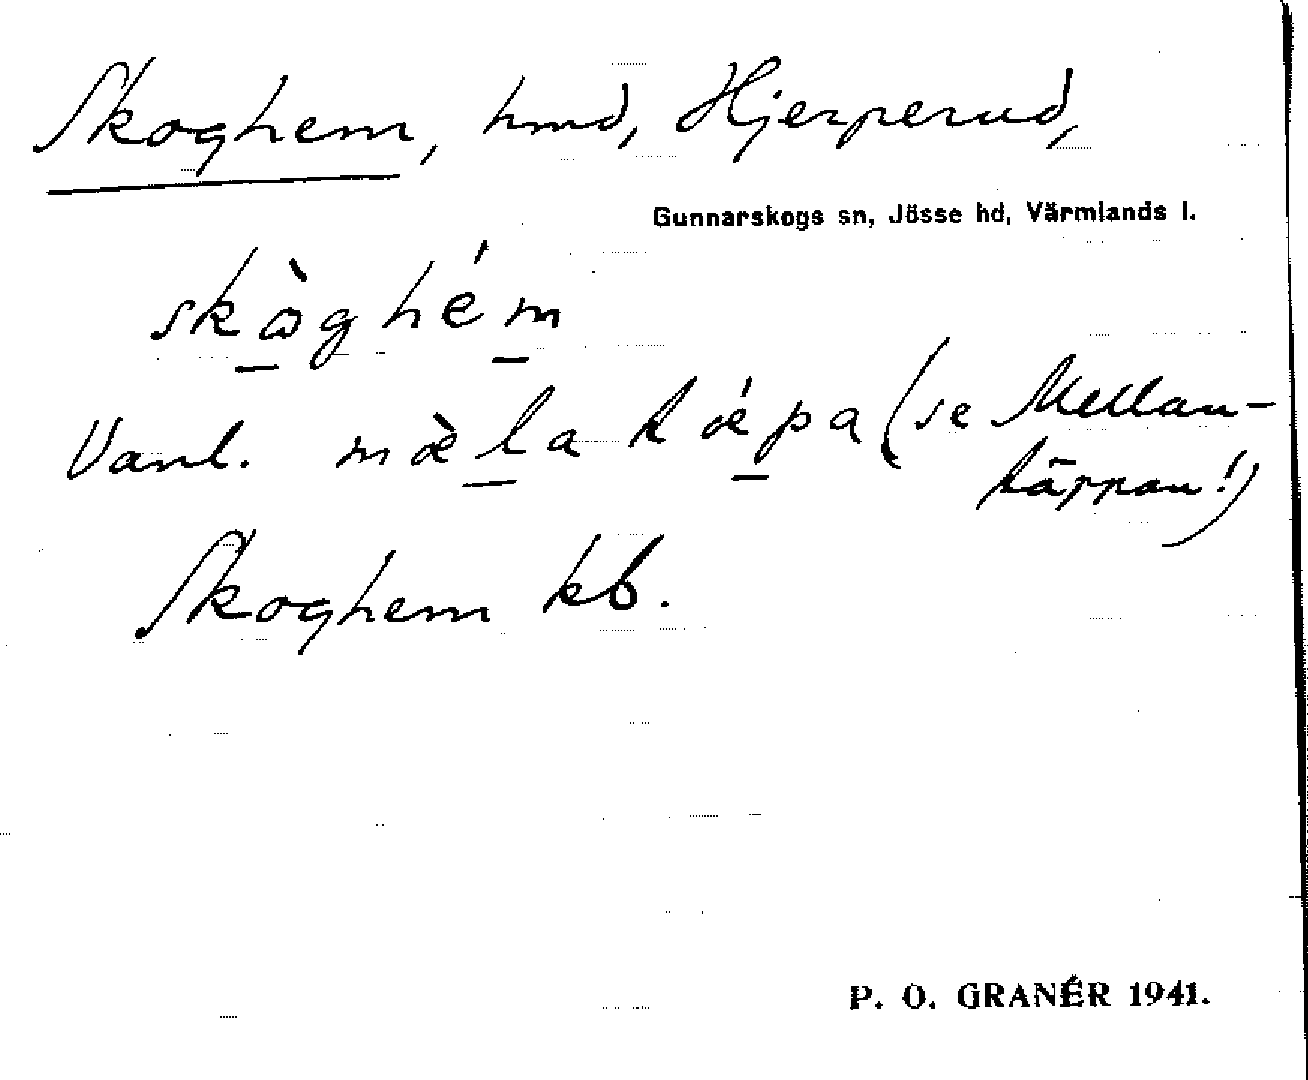 Skoghem, hmd, Hjerperud,
Gunnarskogs sn, Jösse hd, Värmlands l.
skòghém
Vanl. mæ̀la tǽpa (se Mellan-
täppan!)
Skoghem kb.
P. O. GRANÉR 1941.